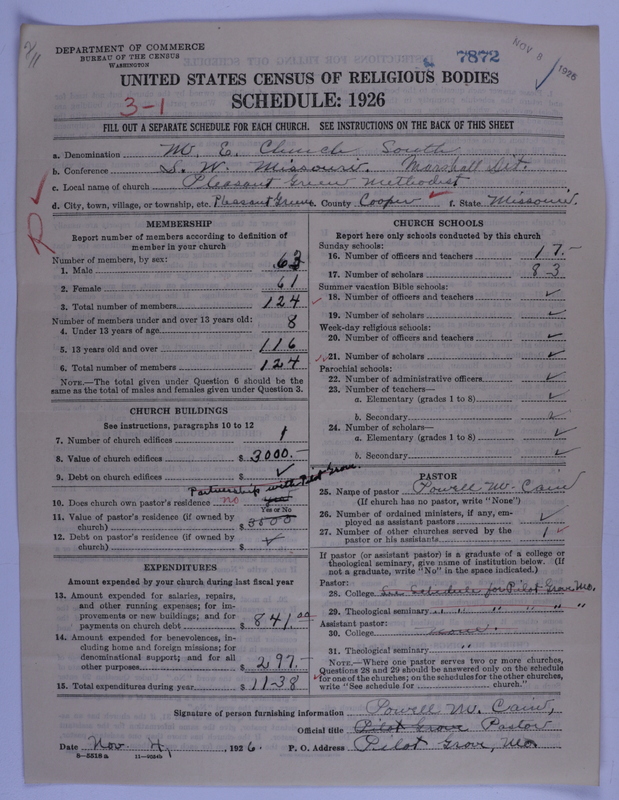 7/11
DEPARTMENT OF COMMERCE
BUREAU OF THE CENSUS
WASHINGTON
7872
NOV 8 1926
UNITED STATES CENSUS OF RELIGIOUS BODIES
3-1
SCHEDULE: 1926
FILL OUT A SEPARATE SCHEDULE FOR EACH CHURCH. SEE INSTRUCTIONS ON THE BACK OF THIS SHEET
a. Denomination M. E. Church South
b. Conference S. W. Missouri. Marshall Dit.
c. Local name of church Pleasant Green Methodist
d. City, town, village, or township, etc. Pleasant Green. County Cooper f. State Missouri.
R
MEMBERSHIP
Report number of members according to definition of
member in your church
Number of members, by sex:
1. Male 63
2. Female 61
3. Total number of members 124
Number of members under and over 13 years old:
4. Under 13 years of age 8
5. 13 years old and over 116
6. Total number of members 124
NOTE.—The total given under Question 6 should be the
same as the total of males and females given under Question 3.
CHURCH BUILDINGS
See instructions, paragraphs 10 to 12
7. Number of church edifices 1
8. Value of church edifices $ 3000.—
9. Debt on church edifices $ ✓
Partnership with Pilot Grove.
10. Does church own pastor's residence no yes
Yes or No
11. Value of pastor's residence (if owned by
church) $ 3000
12. Debt on pastor's residence (if owned by
church) $ ✓
EXPENDITURES
Amount expended by your church during last fiscal year
13. Amount expended for salaries, repairs,
and other running expenses; for im-
provements or new buildings; and for
payments on church debt $ 841.00
14. Amount expended for benevolences, in-
cluding home and foreign missions; for
denominational support; and for all
other purposes $ 297.
15. Total expenditures during year $ 1138
CHURCH SCHOOLS
Report here only schools conducted by this church
Sunday schools:
16. Number of officers and teachers 17.—
17. Number of scholars 83
Summer vacation Bible schools:
18. Number of officers and teachers ✓
19. Number of scholars ✓
Week-day religious schools:
20. Number of officers and teachers ✓
21. Number of scholars ✓
Parochial schools:
22. Number of administrative officers ✓
23. Number of teachers—
a. Elementary (grades 1 to 8) ✓
b. Secondary ✓
24. Number of scholars—
a. Elementary (grades 1 to 8) ✓
b. Secondary ✓
PASTOR
25. Name of pastor Powell M. Cain
(If church has no pastor, write "None")
26. Number of ordained ministers, if any, em-
ployed as assistant pastors ✓
27. Number of other churches served by the
pastor or his assistants 1 ✓
If pastor (or assistant pastor) is a graduate of a college or
theological seminary, give name of institution below. (If
not a graduate, write "No" in the space indicated.)
Pastor:
28. College See Schedule for Pilot Grove Mo.
29. Theological seminary " " " " " "
Assistant pastor:
30. College none.
31. Theological seminary "
NOTE.—Where one pastor serves two or more churches,
Questions 28 and 29 should be answered only on the schedule
for one of the churches; on the schedules for the other churches,
write "See schedule for church."
Signature of person furnishing information Powell M. Cain,
Official title Pilot Grove Pastor
Date Nov. 4, 1926. P. O. Address Pilot Grove, Mo.
8—5518a 11—9054b